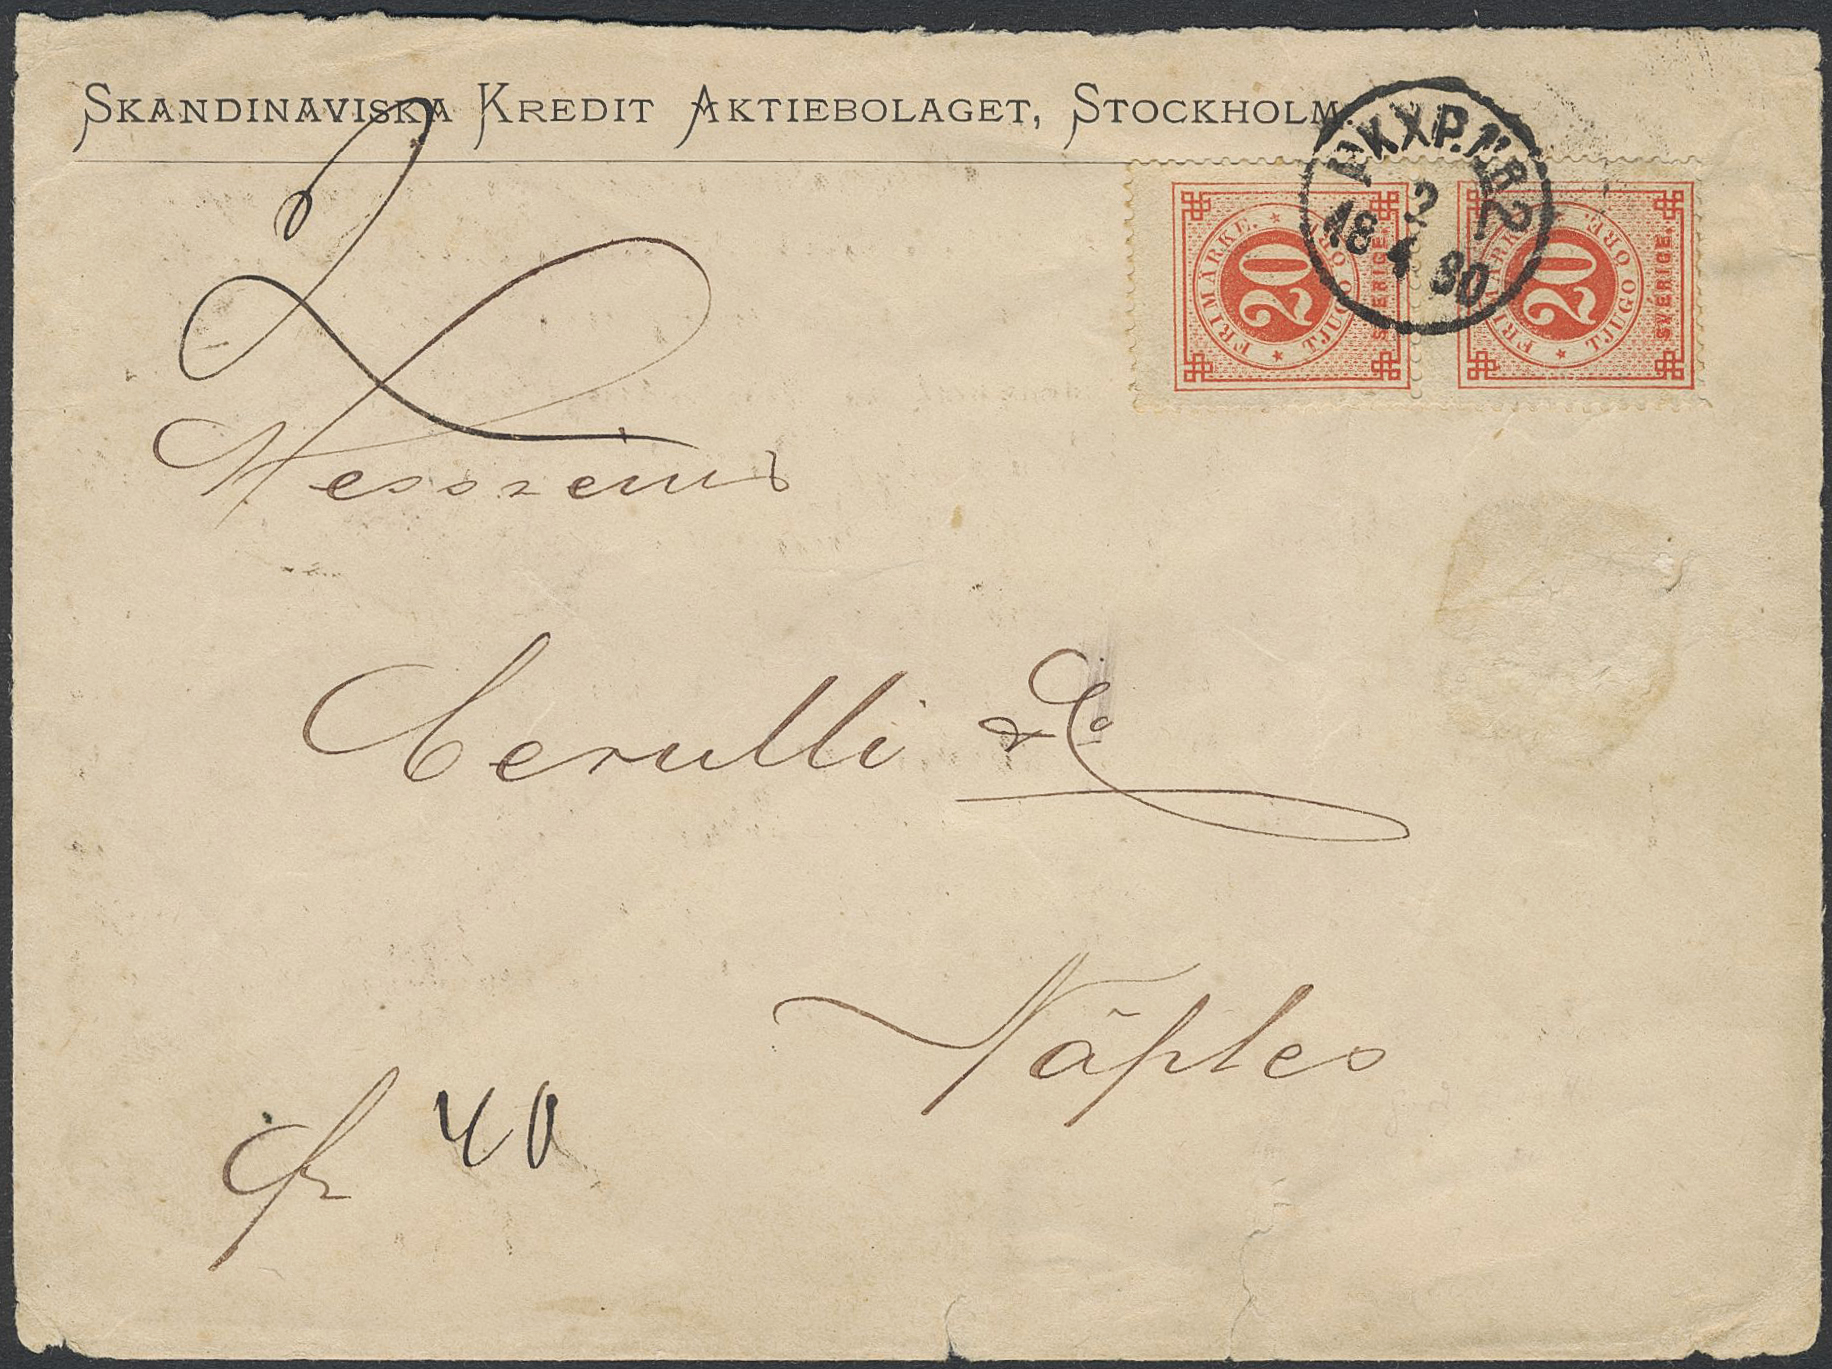 SKANDINAVISKA KREDIT AKTIEBOLAGET, STOCKHOLM.
PKXP. Nr 2
2
18 4 80
FRIMÄRKE. TJUGO ÖRE.
20
SVERIGE.
FRIMÄRKE. TJUGO ÖRE.
20
SVERIGE.
Messieurs
Cerulli & Co
Naples
fr 40